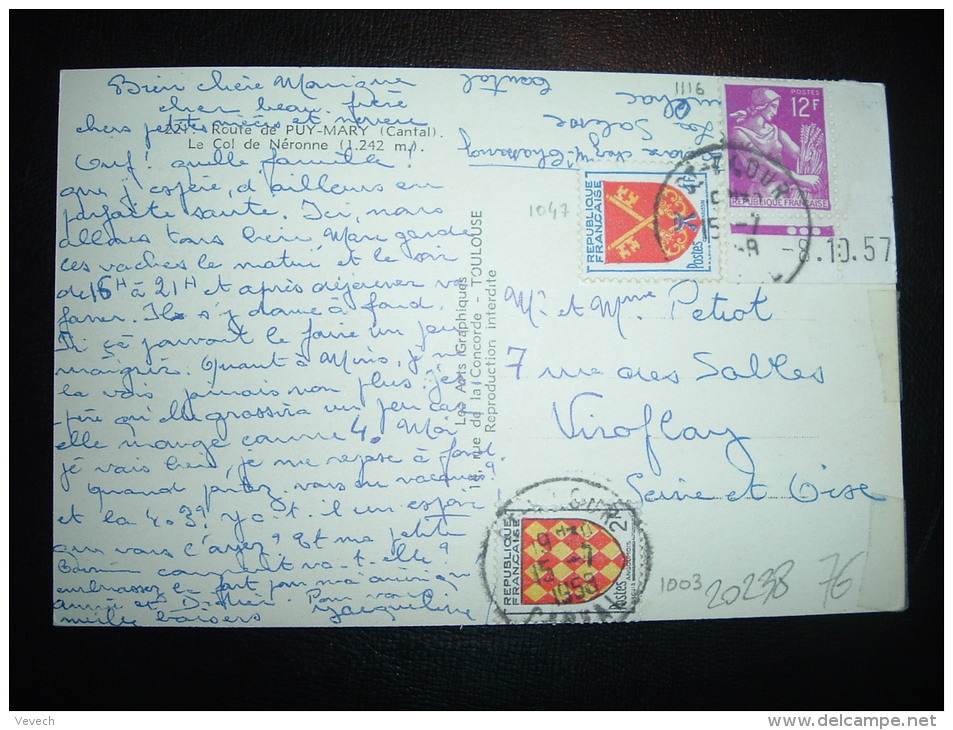 Bien chère Monique
cher beau-frère
chers petites nièces et neveu
221 - Route de PUY-MARY (Cantal).
Le Col de Néronne (1.242 m.).
Ouf! quelle famille!
que j'espère, d'ailleurs en
parfaite santé. Ici, nous
allons tous bien, Marc garde
les vaches le matin et le soir
de 16H à 21H et après déjeuner va
faner. Il s'y donne à fond.
Si ça pouvait le faire un peu
maigrir. Quant à Mimis, je ne
la vois jamais non plus. J'es-
père qu'elle grossira un peu car
elle mange comme 4. Moi
je vais bien, je me repose à fond.
Quand partez-vous en vacances?
et la 403? y a-t-il un espoir
que vous l'ayez? Et ma petite
comment va-t-elle?
embrassez la fort pour moi ainsi qu'
Annie et Didier. Pour vous
mille baisers Jacqueline
Les Arts Graphiques
rue de la Concorde - TOULOUSE
Reproduction interdite
Cantal
La
chez Mr
1116
1047
POSTES
12F
REPUBLIQUE FRANÇAISE
-8.10.57
REPUBLIQUE
FRANÇAISE
Postes
15 -7
Mr et Mme Petiot
7 rue des Sables
Viroflay
Seine et Oise
REPUBLIQUE
FRANÇAISE
2F
ANGOUMOIS
Postes
15 -7
1958
1003
20238
76
Vevech
http://www.delcampe.net